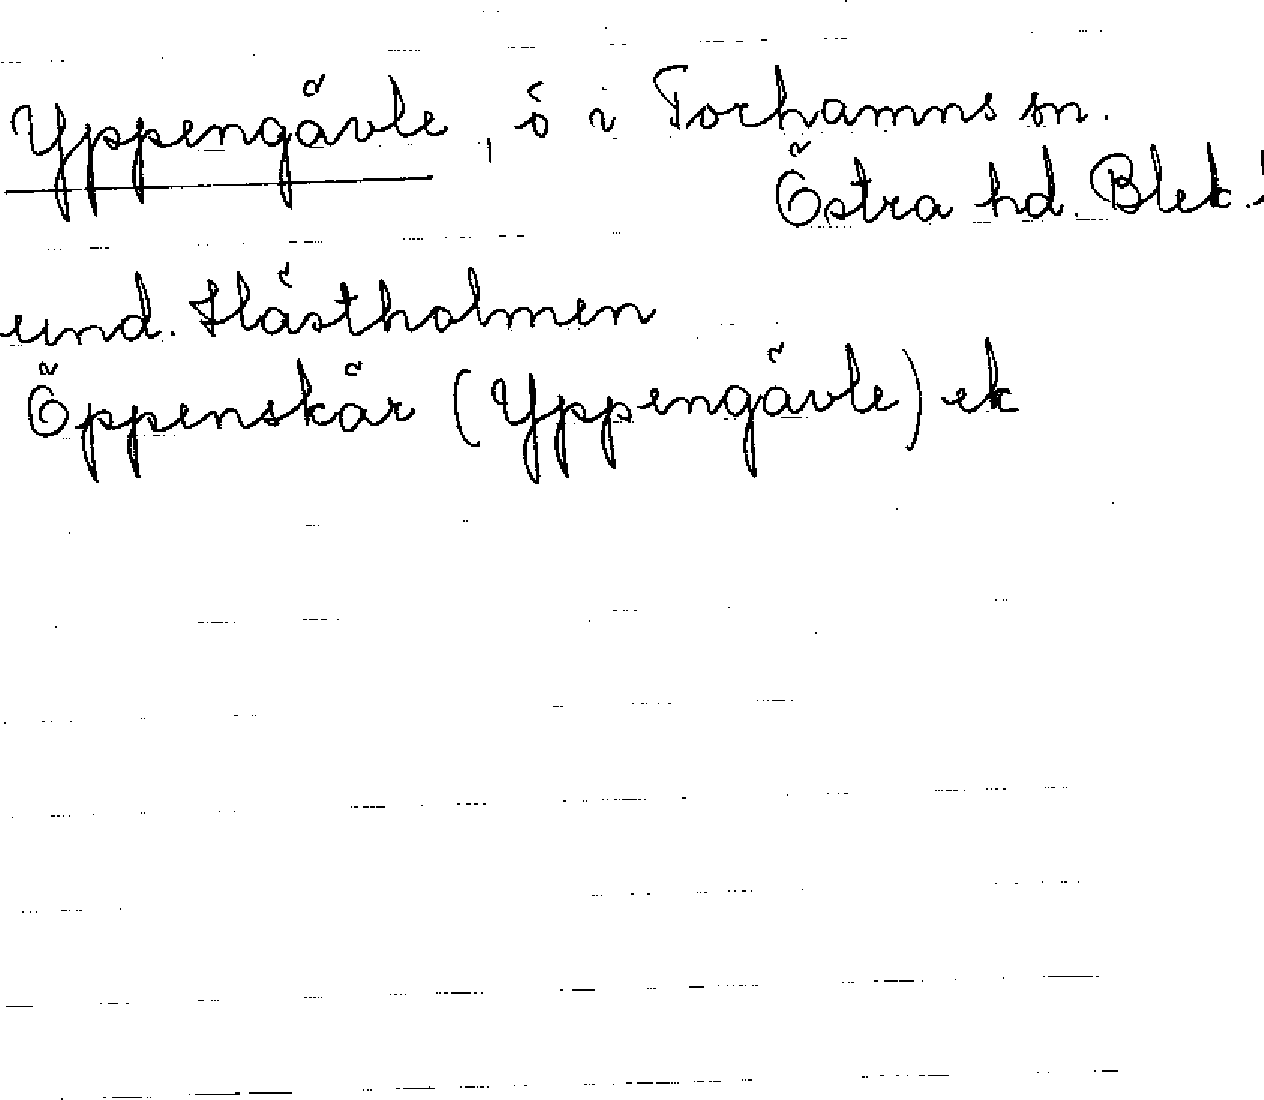 Yppengävle, ö i Torhamns sn.
Östra hd. Blek.
und. Hästholmen
Öppenskär (Yppengävle) ek